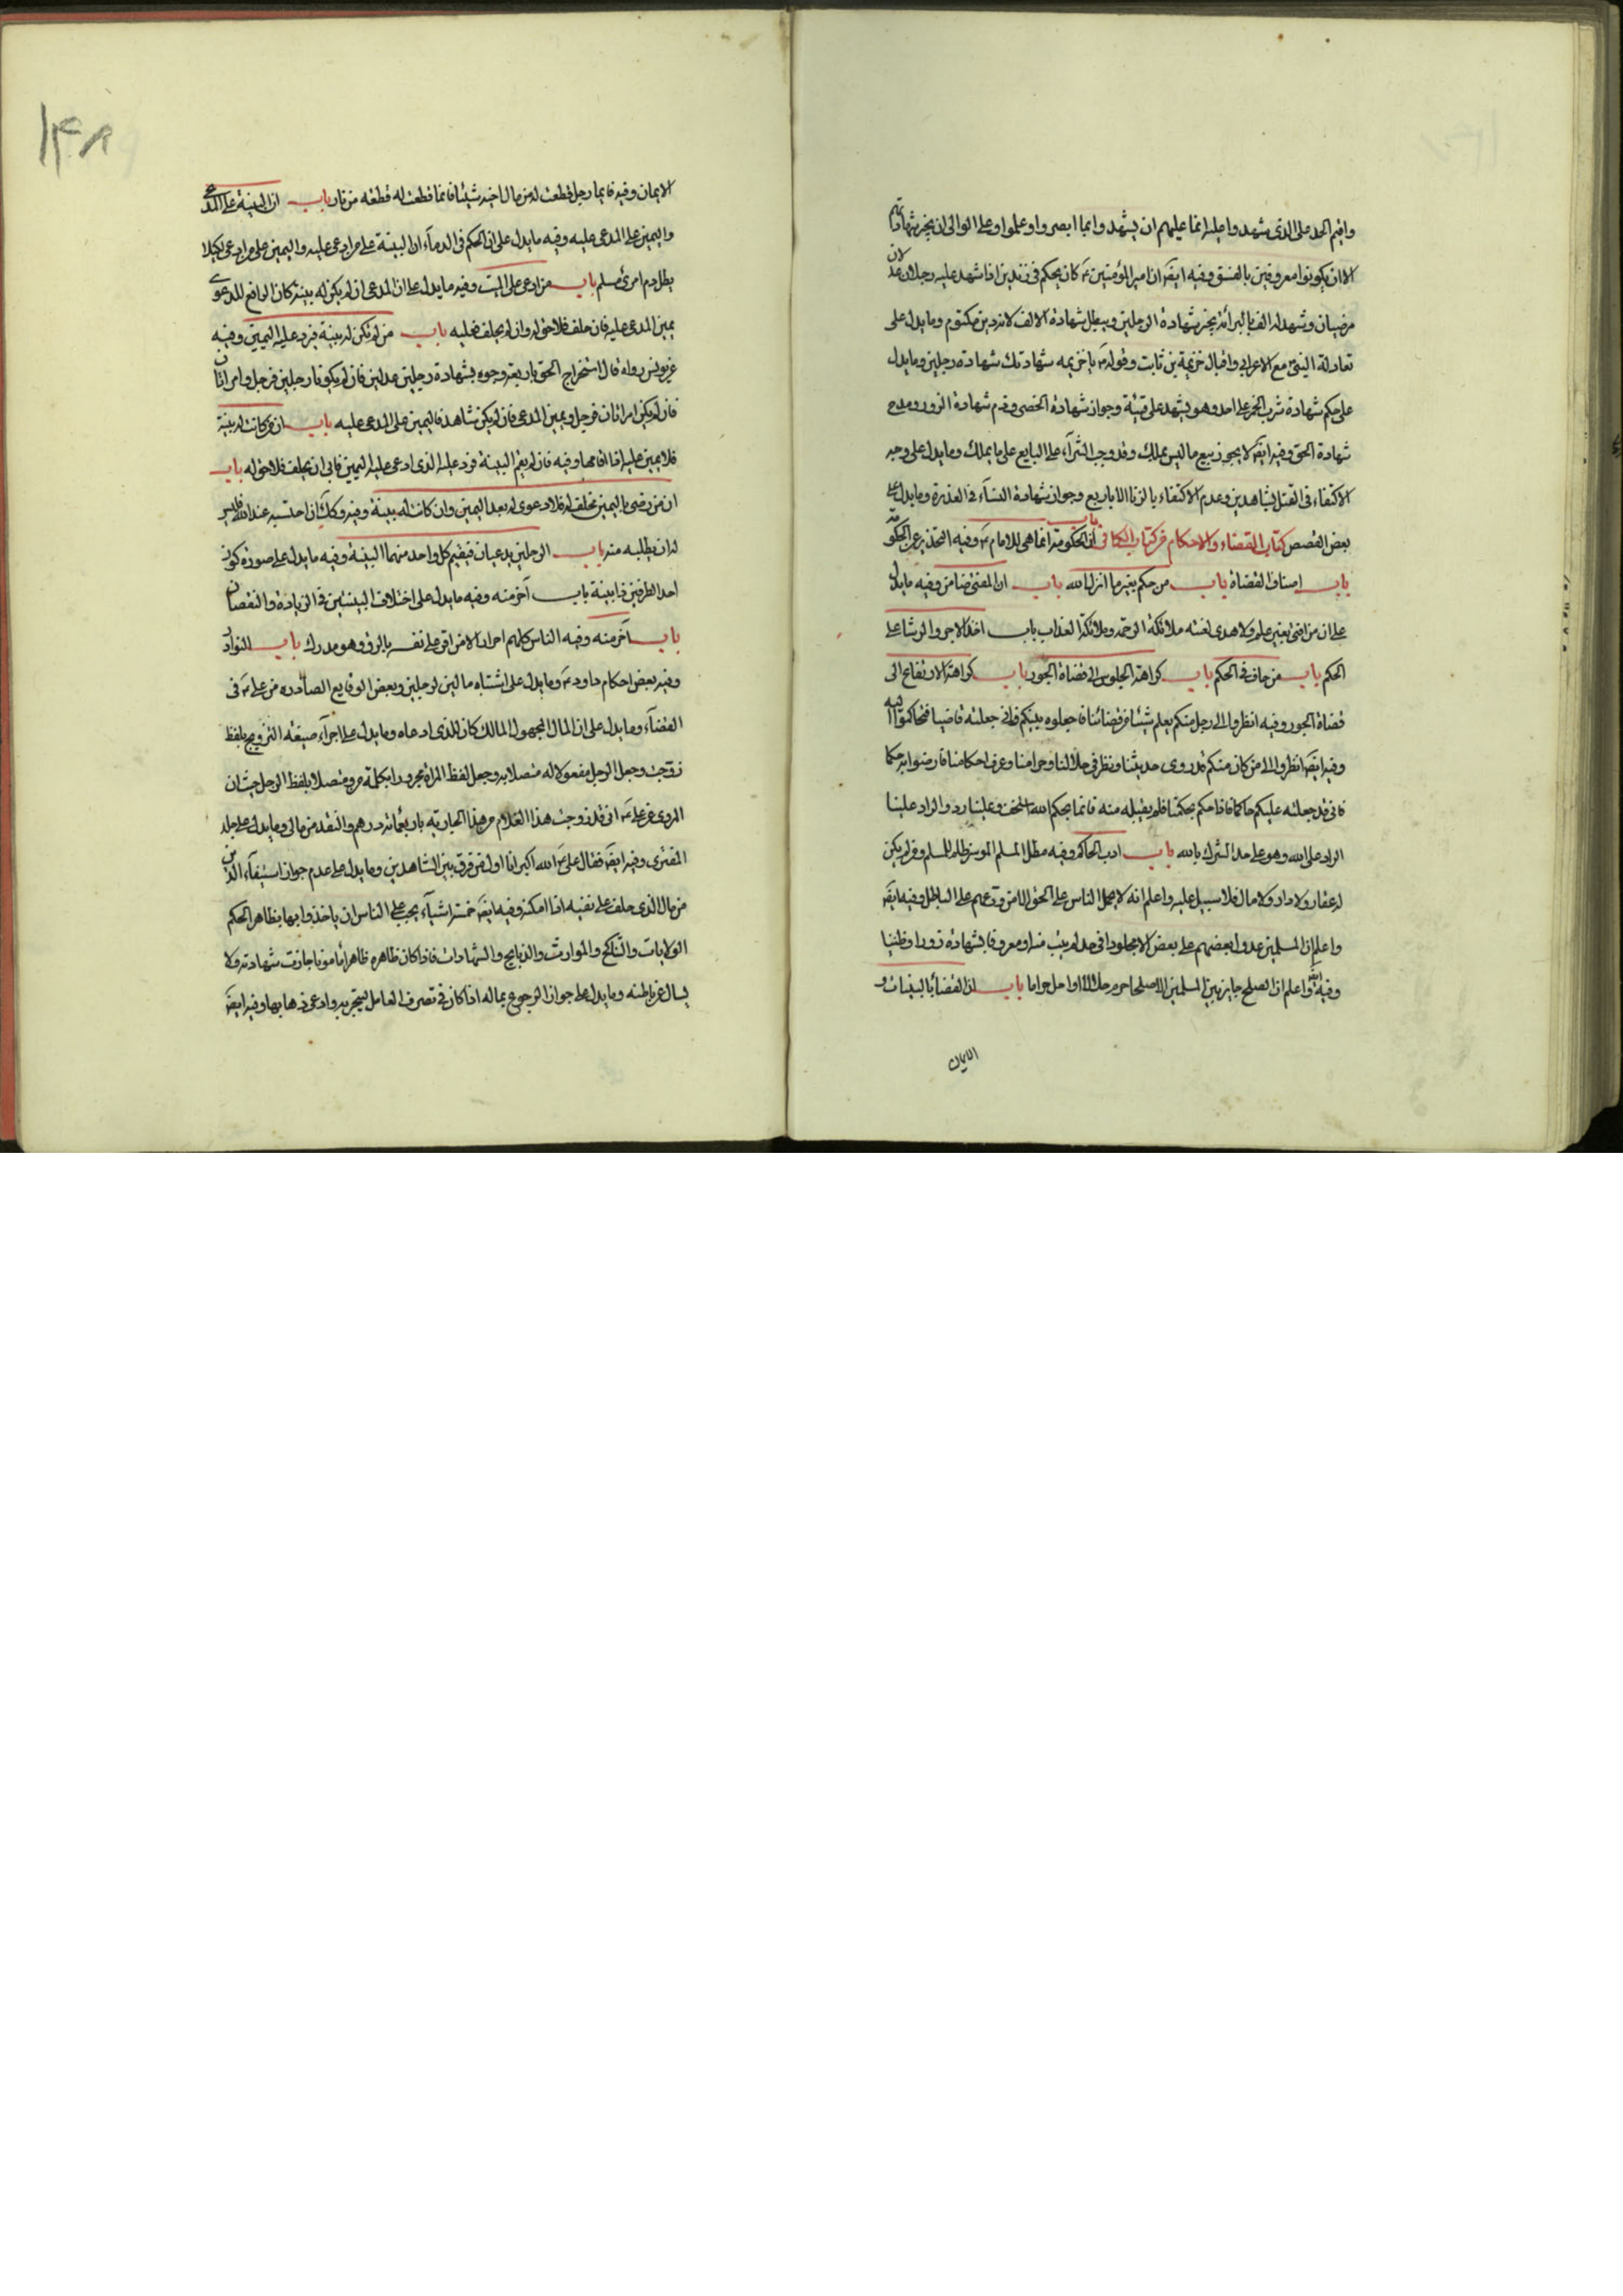 واقيم الحد على الذى شهد واعليه انما عليهم ان يشهدوا بما ابصروا وعلموا وعلى الوالى ان يجيز شهادتهم
الا ان يكونوا معروفين بالفسق وفيه ايضَ ان امير المؤمنين عَ كان يحكم فى زنديق اذا شهد عليه رجلان عدلان
مرضيان وشهد له الف بالبرائة يجيز شهادة الرجلين ويبطل شهادة الالف لانه دين مكتوم وما يدل على
تعادلة النبى مع الاعرابى واقبال خزيمة بن ثابت وقوله يا خزيمه شهادتك شهادة رجلين وما يدل
على حكم شهادة شرب الخمر على احد وهو يشهد على قيئه وجواز شهادة الخصى وذم شهادة الزور ومدح
شهادة الحق وفيه ايضَ لا يجوز بيع ما ليس يملك وقد وجب الشرآء على البايع على ما يملك وما يدل على وجه
الاكتفاء فى القتل بشاهدين وعدم الاكتفاء بالزنا الا باربع وجواز شهادة النسآء فى العذرة وما يدل على
بعض القصص كتاب القضاء والاحكام من كتاب الكافى باب ان الحكومة انما هى للامام عَ وفيه التحذير عن الحكومة
باب اصناف القضاة باب من حكم بغير ما انزل الله باب ان المفتى ضامن وفيه ما يدل
على ان من افتى بغير علم ولا هدى لعنته ملائكة الرحمة وملائكة العذاب باب اخذ الاجر والرشا على
الحكم باب من حاف فى الحكم باب كراهة الجلوس الى قضاة الجور باب كراهة الارتفاع الى
قضاة الجور وفيه انظروا الى رجل منكم يعلم شيئا من قضائنا فاجعلوه بينكم فانى جعلته قاضيا فتحاكموا اليه
وفيه ايضَ انظروا الى من كان منكم قد روى حديثنا ونظر فى حلالنا وحرامنا وعرف احكامنا فارضوا به حكما
فانى قد جعلته عليكم حاكما فاذا حكم بحكمنا فلم يقبله منه فانما بحكم الله استخف وعلينا رد والراد علينا
الراد على الله وهو على حد الشرك بالله باب ادب الحاكم وفيه مطل المسلم الموسر ظلم للمسلم ومن لم يكن
له عقار ولا دار ولا مال فلا سبيل عليه واعلم انه لا يحمل الناس على الحق الا من ورعهم على الباطل وفيه ايضَ
واعلم ان المسلمين عدول بعضهم على بعض الا مجلودا فى حد لم يتب منه او معروفا بشهادة زور او ظنينا
وفيه ايضَ واعلم ان الصلح جايز بين المسلمين الا صلحا حرم حلالا او احل حراما باب ان القضاء بالبينات و
الايمان
١٤٨
الايمان وفيه فايما رجل قطعت له من مال اخيه شيئا فانما قطعت له قطعه من نار باب ان البينة على المدعى
واليمين على المدعى عليه وفيه ما يدل على ان الحكم فى الدمآء ان البينة على من ادعى عليه واليمين على من ادعى لكيلا
يطل دم امرئ مسلم باب من ادعى على الميت وفيه ما يدل على ان المدعى ان لم يكن له بينة كان الدافع للدعوى
يمين المدعى عليه فان حلف فلا حق له وان لم يحلف فعليه باب من لم تكن له بينة فيرد عليه اليمين وفيه
عن يونس رواه قال استخراج الحق باربعة وجوه بشهادة رجلين عدلين فان لم يكونا رجلين فرجل وامراتان
فان لم يكن امراتان فرجل ويمين المدعى فان لم يكن شاهد فاليمين على المدعى عليه باب ان من كانت له بينة
فلا يمين عليه اذا اقامها وفيه فان لم يقم البينة فرد عليه الذى ادعى عليه اليمين فابى ان يحلف فلا حق له باب
ان من رضى باليمين فحلف له فلا دعوى له بعد اليمين وان كانت له بينة وفيه وكك ان احتسبه عند الله فليس
له ان يطلبه منه باب الرجلين يدعيان فيقيم كل واحد منهما البينة وفيه ما يدل على صورة كون
احد الطرفين ذا بينة باب آخر منه وفيه ما يدل على اختلاف البينتين فى الزيادة والنقصان
باب آخر منه وفيه الناس كلهم احرار الا من اقر على نفسه بالرق وهو مدرك باب النوادر
وفيه بعض احكام داود عَ وما يدل على اشتباه مالين لرجلين وبعض الوقايع الصادره من على عَ فى
القضآء وما يدل على ان المال المجهول المالك كان للذى ادعاه وما يدل على اجرآء صيغة التزويج بلفظ
زوجت وجعل الرجل مفعولا له متصلا به وجعل لفظ المراة مجرورا بكلمة من ومتصلا بلفظ الرجل حيث ان
المروى عن على عَ انى قد زوجت هذا الغلام من هذا الجارية باربعمائة درهم والنقد من مالى وما يدل على جلد
المفترى وفيه ايضَ فقال على عَ الله اكبر انا اول من فرق بين الشاهدين وما يدل على عدم جواز استيفآء الدين
من مال الذى حلف على نفيه اذا امكنه وفيه ايضَ خمسة اشيآء يجب على الناس ان ياخذوا بها بظاهر الحكم
الولايات والتناكح والمواريث والذبايح والشهادات فاذا كان ظاهره ظاهرا مامونا جازت شهادته ولا
يسال عن باطنه وما يدل على جواز الرجوع بماله اذا كان فى تصرف العامل ليتجر به وادعى ذهابها وفيه ايضَ